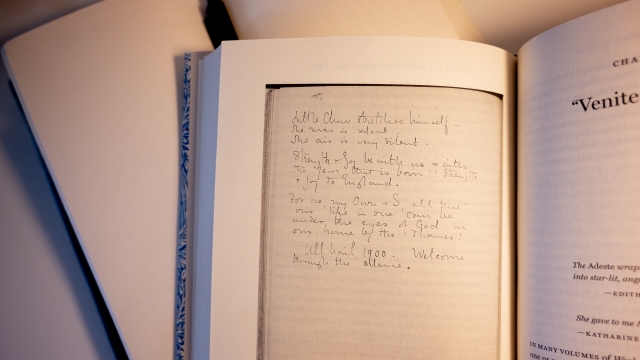 Little Chow stretches himself -
The river is silent
The air is very silent.
Strength & Joy be with us & with
the year that is born !! Strength
& Joy to England.
For us, my Ours + S all that
our life in one can be
under the eyes of God in
our home by the Thames!
All hail, 1900. Welcome
through the silence.
CHA
"Venite
The Adeste wrap
into star-lit, ang
—EDITH
She gave to me
—KATHARINE
IN MANY VOLUMES of
one or